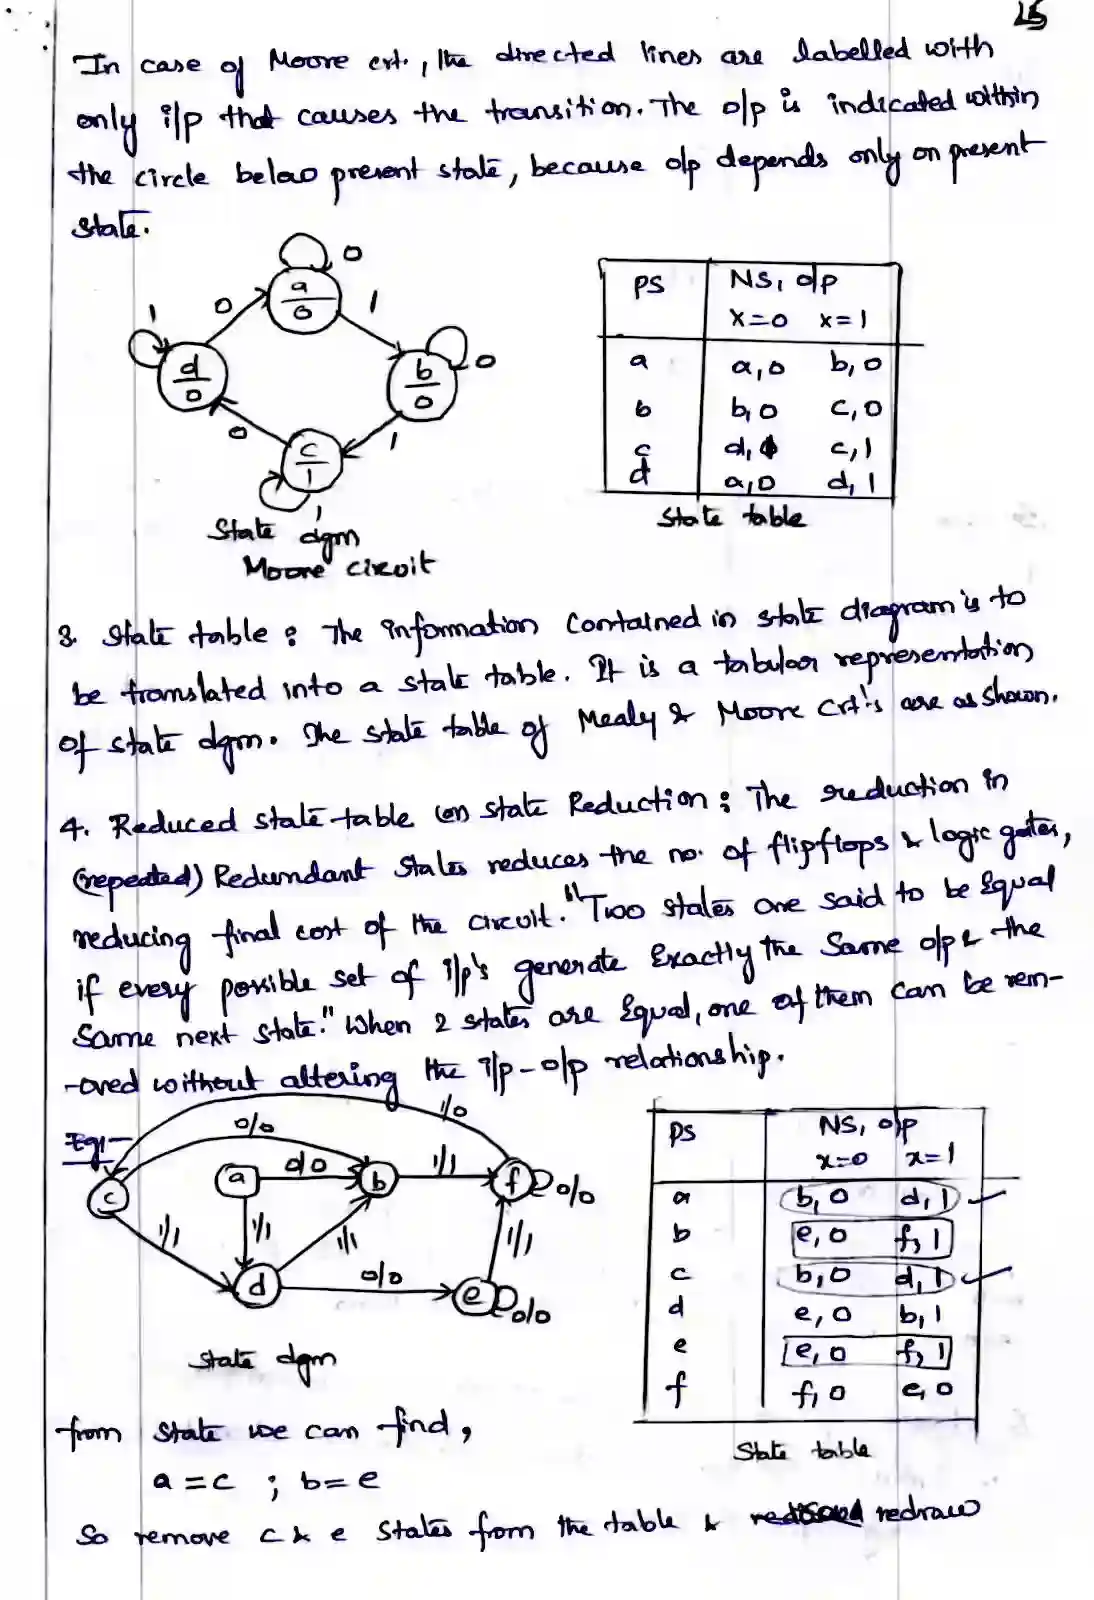 15
In case of Moore crt., the directed lines are labelled with
only i/p that causes the transition. The o/p is indicated within
the circle below present state, because o/p depends only on present
state.
0
a
0
0
1
1
d
0
b
0
0
0
1
c
1
1
State dgm
Moore circuit
PS NS, o/p
X=0 X=1
a a,0 b,0
b b,0 c,0
c d, c,1
d a,0 d,1
State table
3. State table : The information contained in state diagram is to
be translated into a state table. It is a tabular representation
of state dgm. The state table of Mealy & Moore crt's are as shown.
4. Reduced state table (or) state Reduction : The reduction in
(repeated) Redundant states reduces the no. of flipflops & logic gates,
reducing final cost of the circuit. "Two states are said to be Equal
if every possible set of i/p's generate Exactly the same o/p & the
same next state." When 2 states are Equal, one of them can be rem-
-oved without altering the i/p-o/p relationship.
Eg:-
1/0
0/0
c
a
0/0
b
1/1
f
0/0
1/1
1/1
1/1
1/1
d
0/0
e
0/0
State dgm
PS NS, o/p
x=0 x=1
a b,0 d,1
b e,0 f,1
c b,0 d,1
d e,0 b,1
e e,0 f,1
f f,0 c,0
State table
from state we can find,
a = c ; b = e
So remove c & e states from the table & redraw